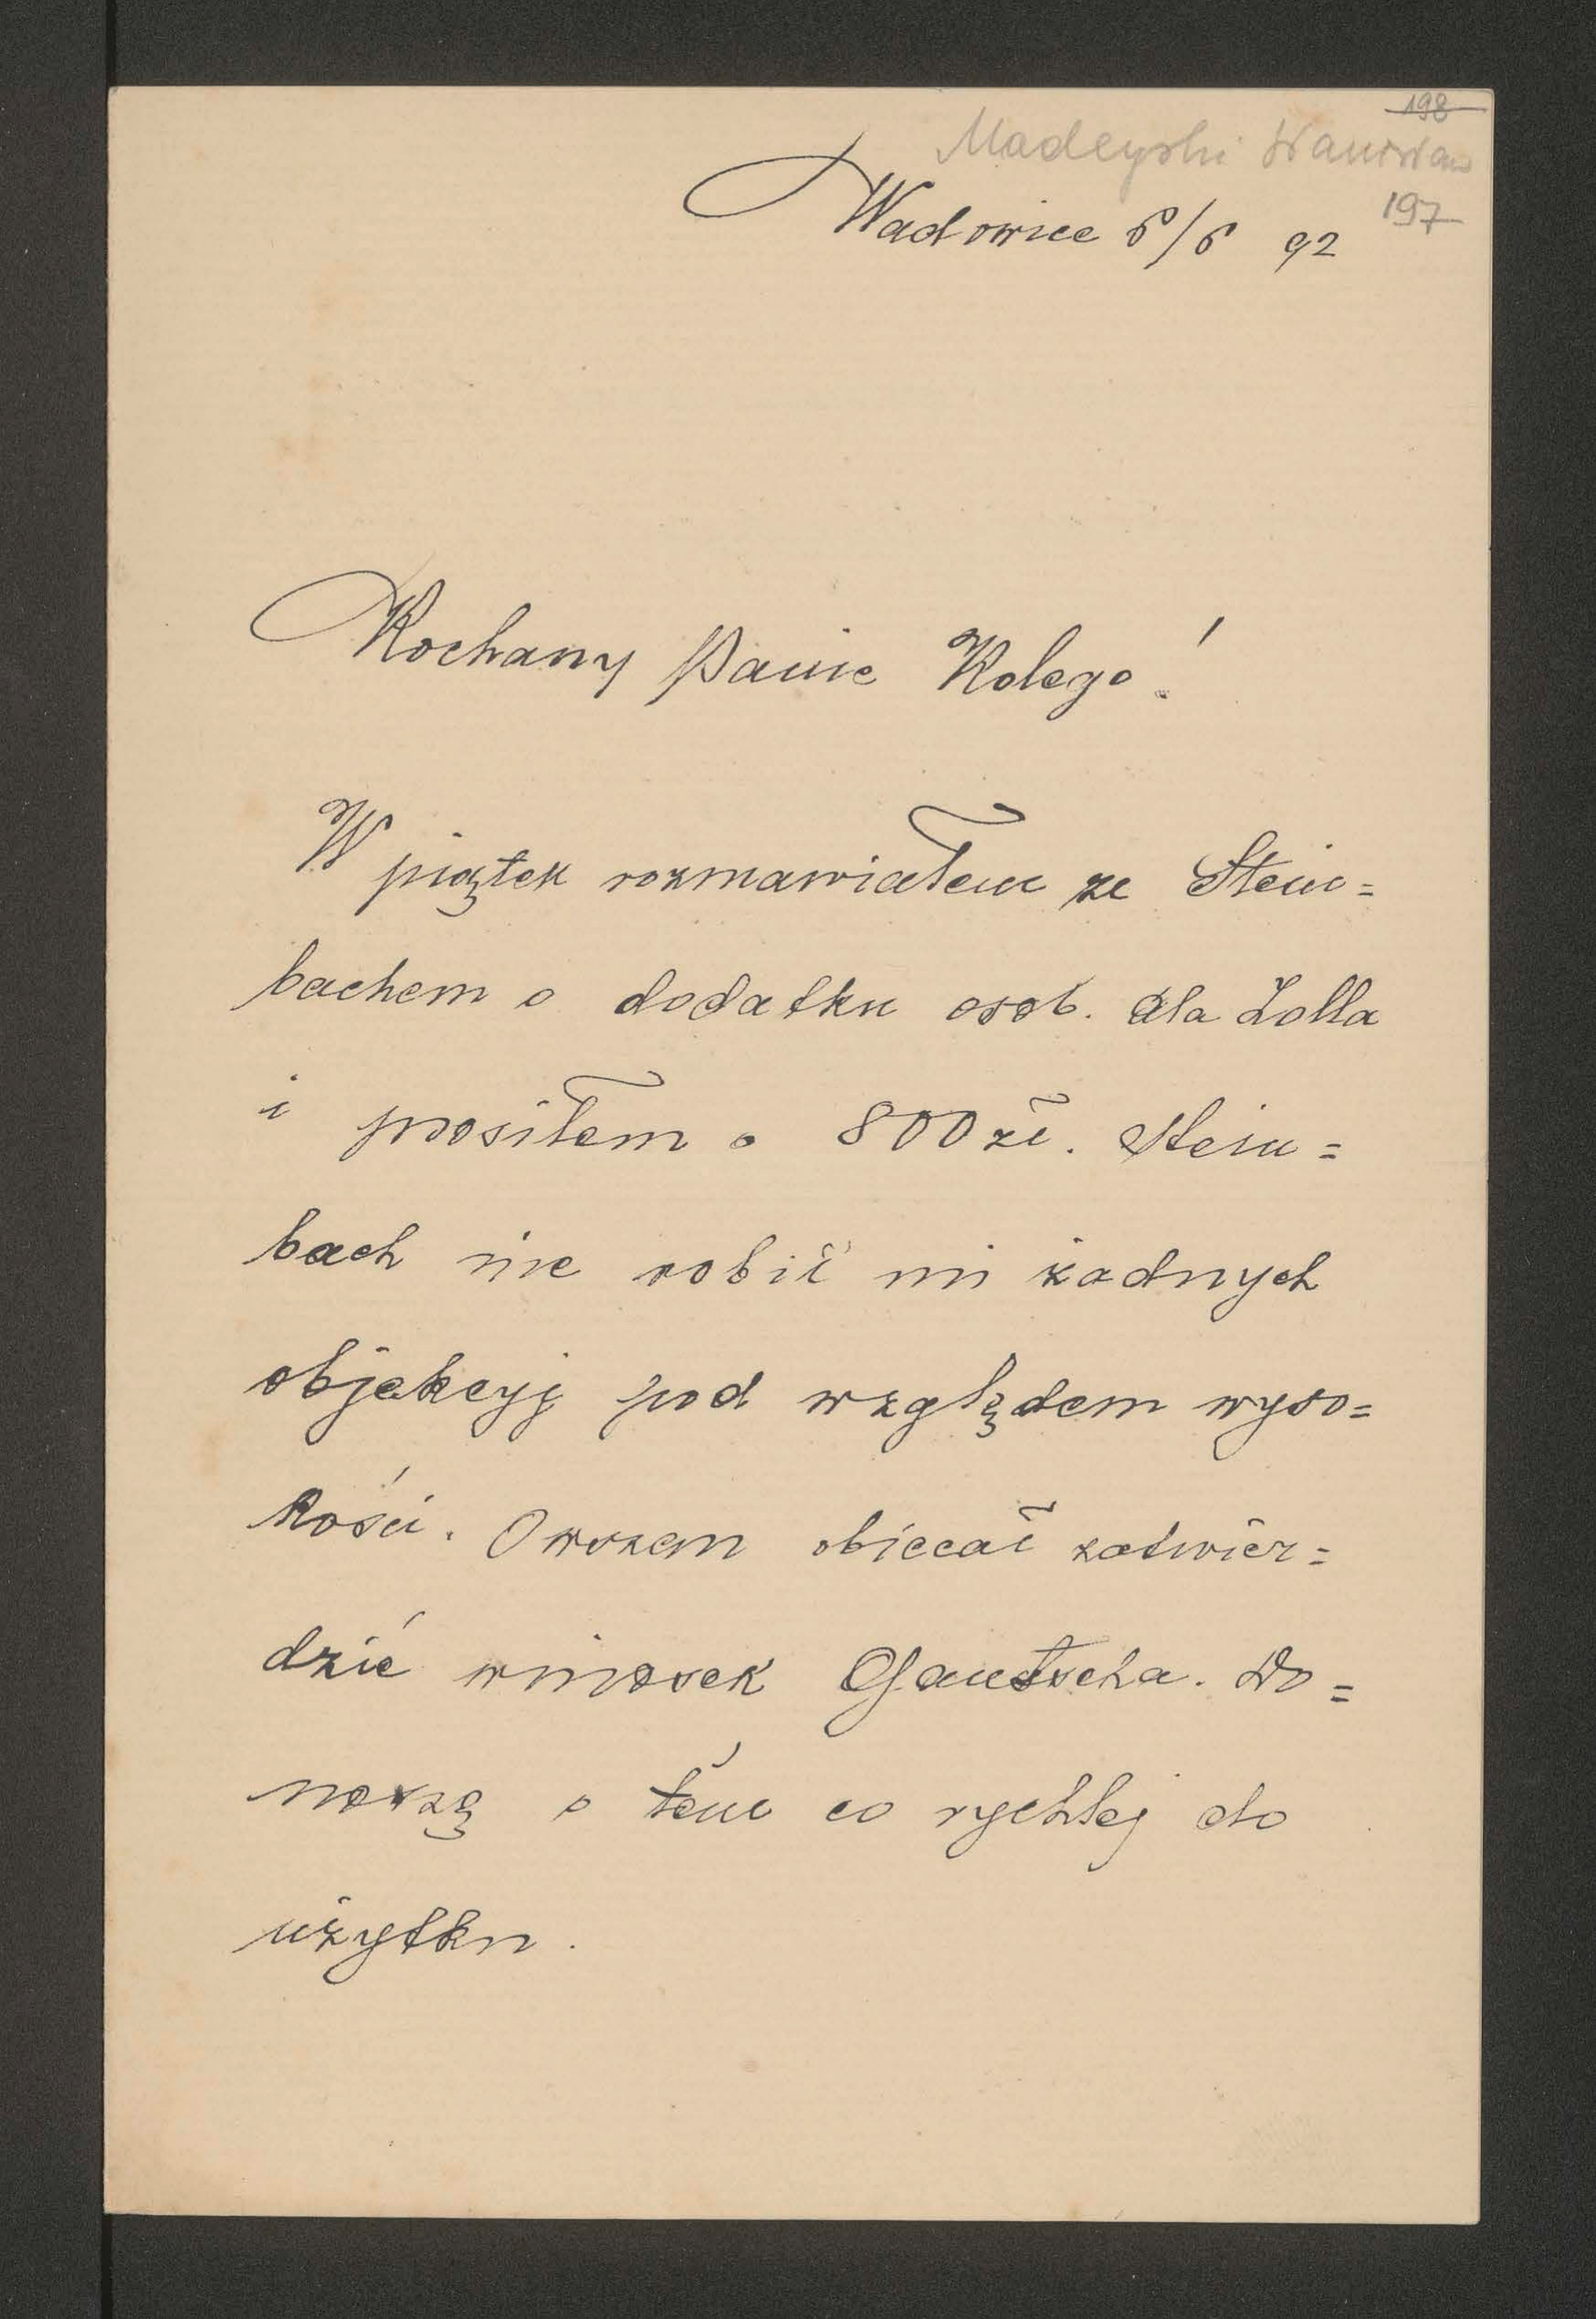 198
Madeyski Stanisław
197
Wadowice 6/6 92
Kochany Panie Kolego!
W piątek rozmawiałem ze Stein=
bachem o dodatku osob. dla Zolla
i prosiłem o 800 zł. Stein=
bach nie robił mi żadnych
objekcyj pod względem wyso=
kości. Owszem obiecał zatwier=
dzić wniosek Gautscha. Do=
noszę o tém co rychlej do
użytku.